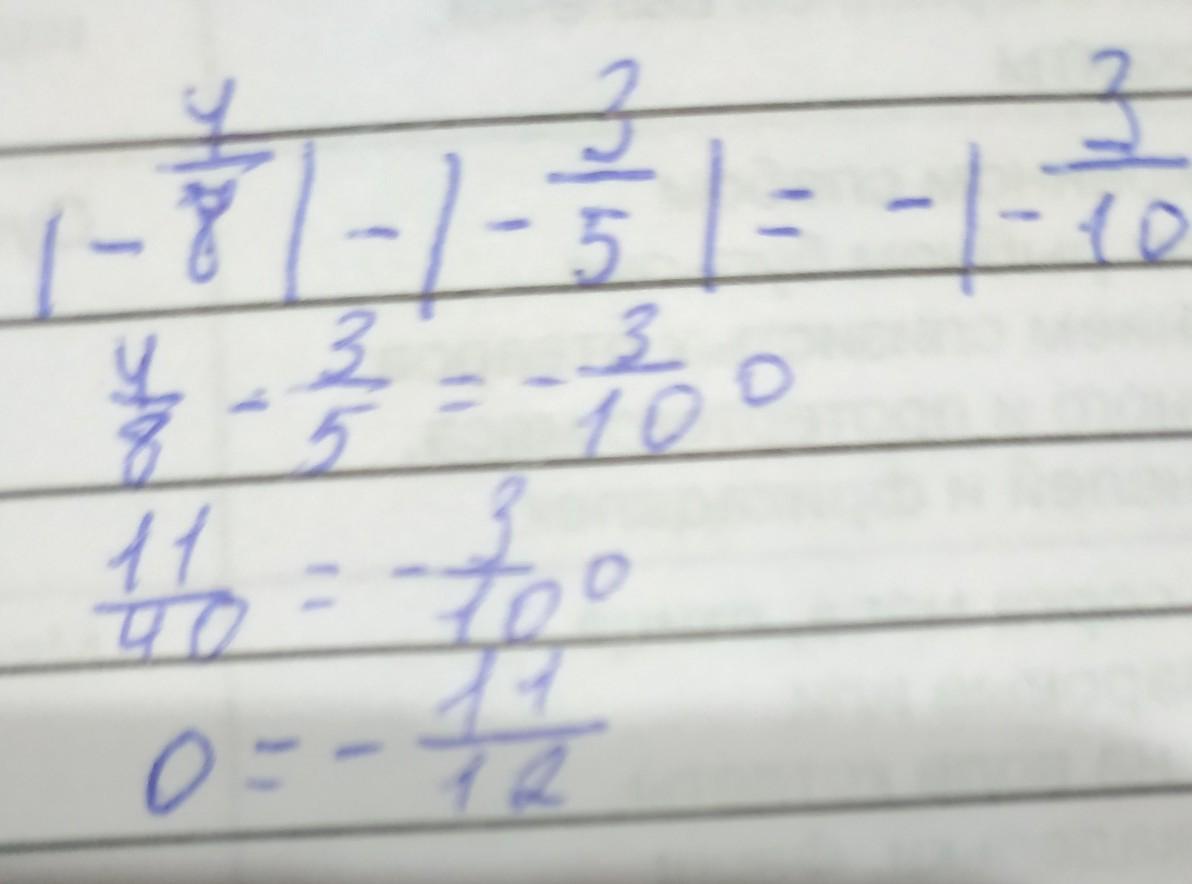 |-4/8| - |-3/5| = -|-3/10
4/8 - 3/5 = -3/10 0
11/40 = -3/10 0
0 = -11/12